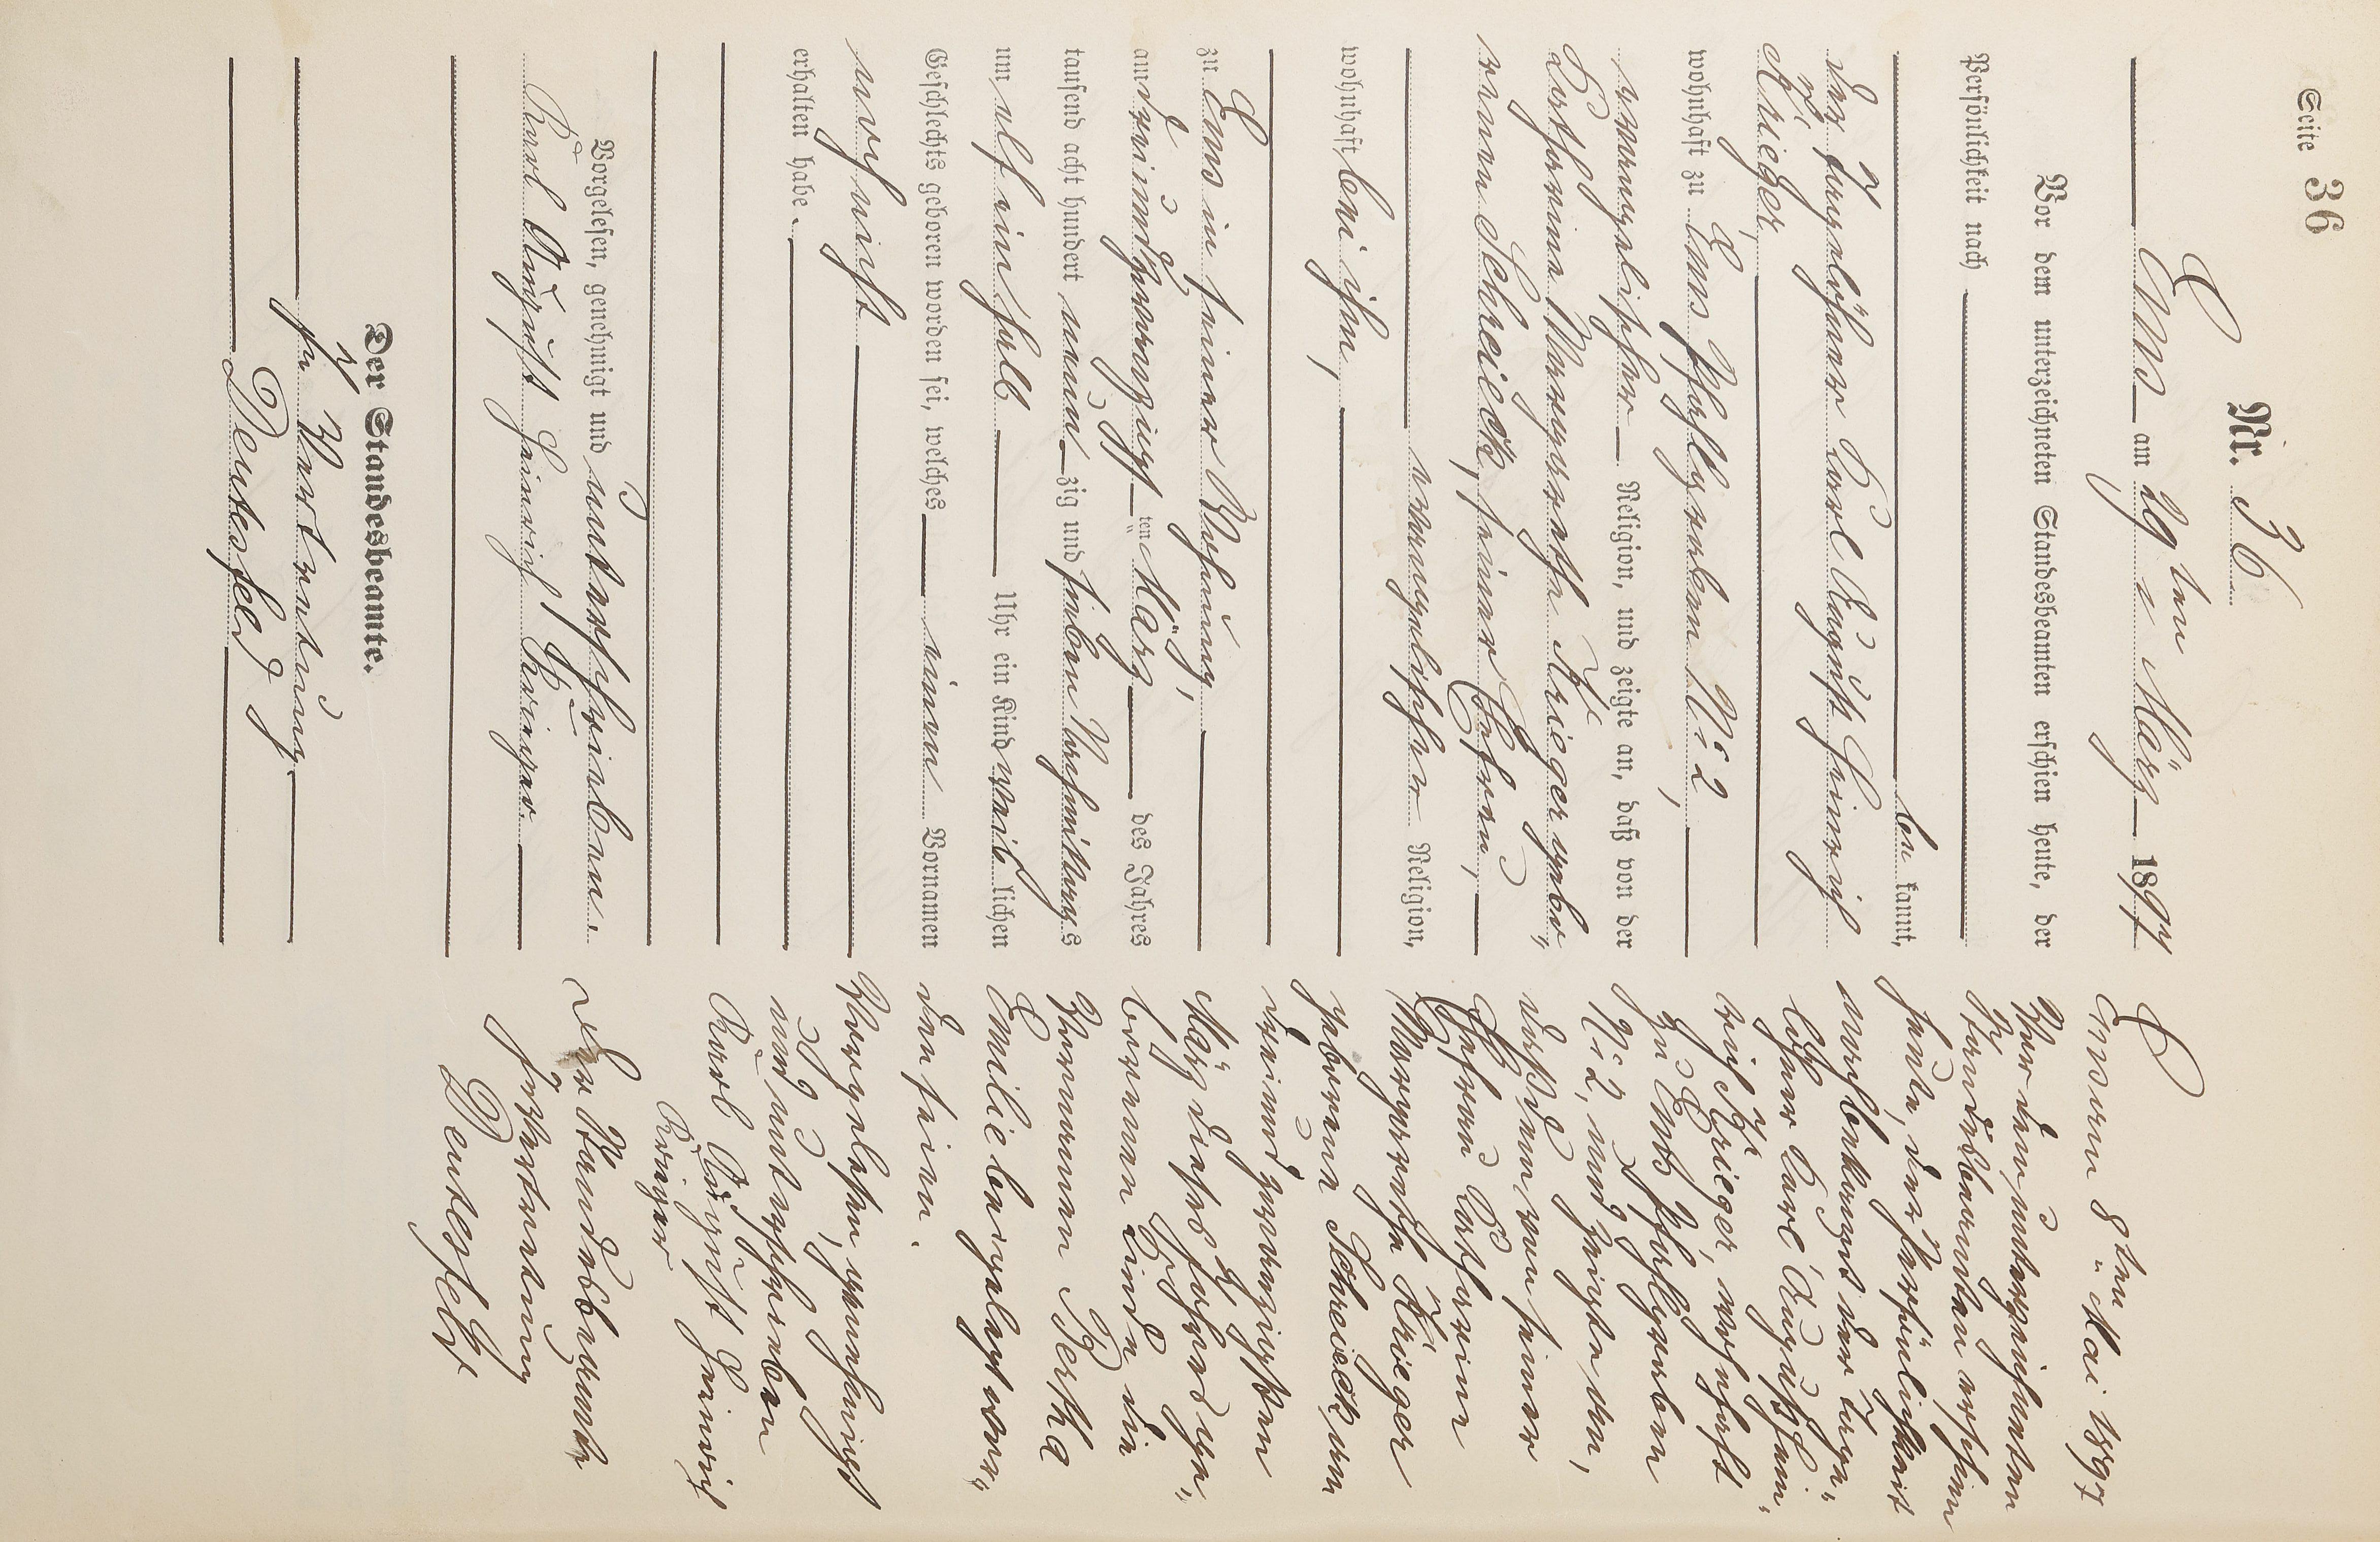 Seite 36
Nr. 36
Ems am 29ten März 1897
Vor dem unterzeichneten Standesbeamten erschien heute, der
Persönlichkeit nach
be kannt,
der Tagelöhner Carl August Heinrich
Krieger,
wohnhaft zu Ems Pfahlgraben No 2,
evangelischer Religion, und zeigte an, daß von der
Catharina Margaretha Krieger gebo¬
renen Schreieck, seiner Ehefrau,
evangelischer Religion,
wohnhaft bei ihm,
zu Ems in seiner Wohnung,
am dreiundzwanzigsten März des Jahres
tausend acht hundert neunzig und sieben Nachmittags
um elfeinhalb Uhr ein Kind weiblichen
Geschlechts geboren worden sei, welches einen Vornamen
noch nicht
erhalten habe.
Vorgelesen, genehmigt und unterschrieben.
Karl August Heinrich Krieger.
Der Standesbeamte.
In Vertretung
Deutesfeld
Ems am 8ten Mai 1897
Vor dem unterzeichneten
Standesbeamten erschien
heute, der Persönlichkeit
nach bekannt der Tage¬
löhner Carl August Hein¬
rich Krieger, wohnhaft
zu Ems Pfahlgraben
No 2, und zeigte an,
daß dem von seiner
Ehefrau Catharina
Margaretha Krieger
geborene Schreieck, am
dreiundzwanzigsten
März dieses Jahres ge¬
borenen Kinde die
Vornamen Bertha
Emilie beigelegt wor¬
den seien.
Vorgelesen, genehmigt
und unterschrieben
Karl August Heinrich
Krieger
Der Standesbeamte
In Vertretung
Deutesfeld